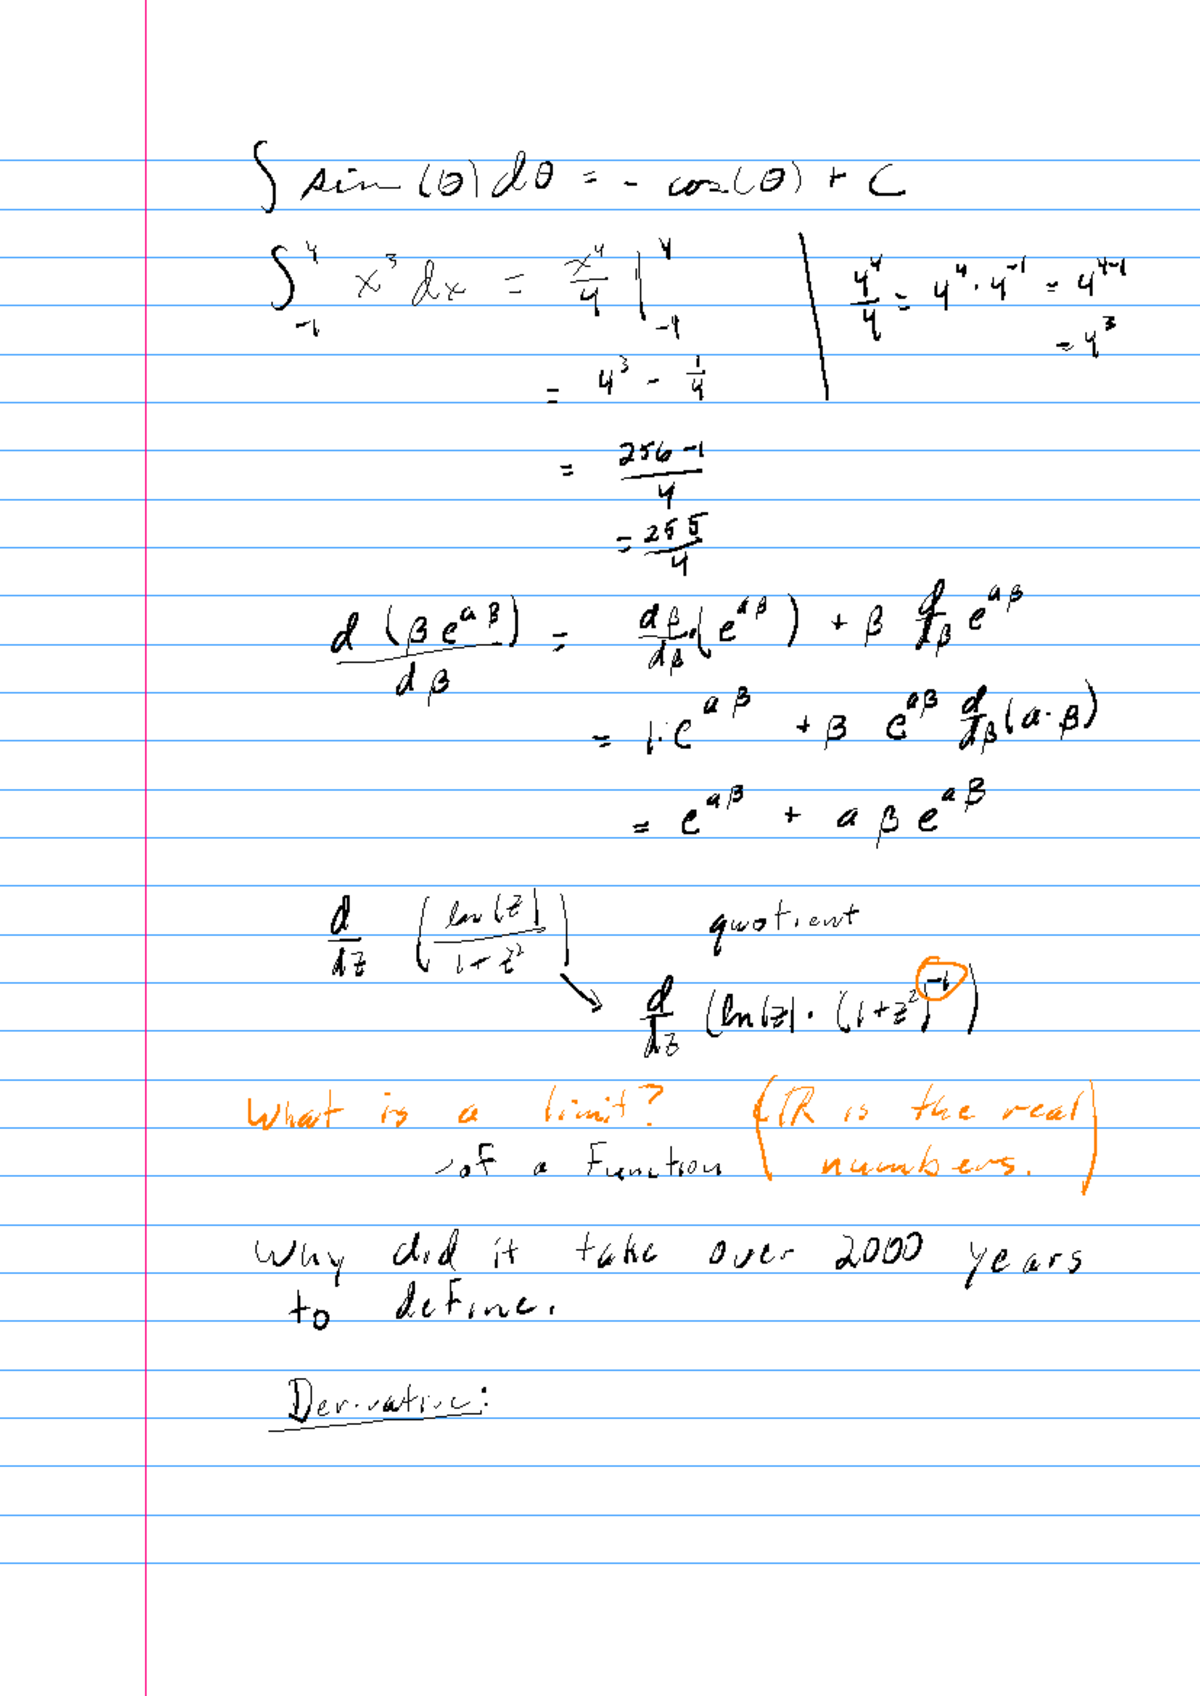 ∫ sin(θ) dθ = - cos(θ) + C
∫_{-1}^{4} x^3 dx = x^4/4 |_{-4}^{4} | 4^4/4 = 4^4 · 4^{-1} = 4^{4-1}
= 4^3
= 4^3 - 1/4
= (256 - 1)/4
= 255/4
d(β e^{aβ})/dβ = dβ/dβ · (e^{aβ}) + β d/dβ e^{aβ}
= 1 · e^{aβ} + β e^{aβ} d/dβ (a · β)
= e^{aβ} + a β e^{aβ}
d/dz (ln(z)/(1 + z^2)) quotient
→ d/dz (ln(z) · (1 + z^2)^{-1})
What is a limit? (ℝ is the real
of a Function numbers.)
Why did it take over 2000 years
to define.
Derivative: